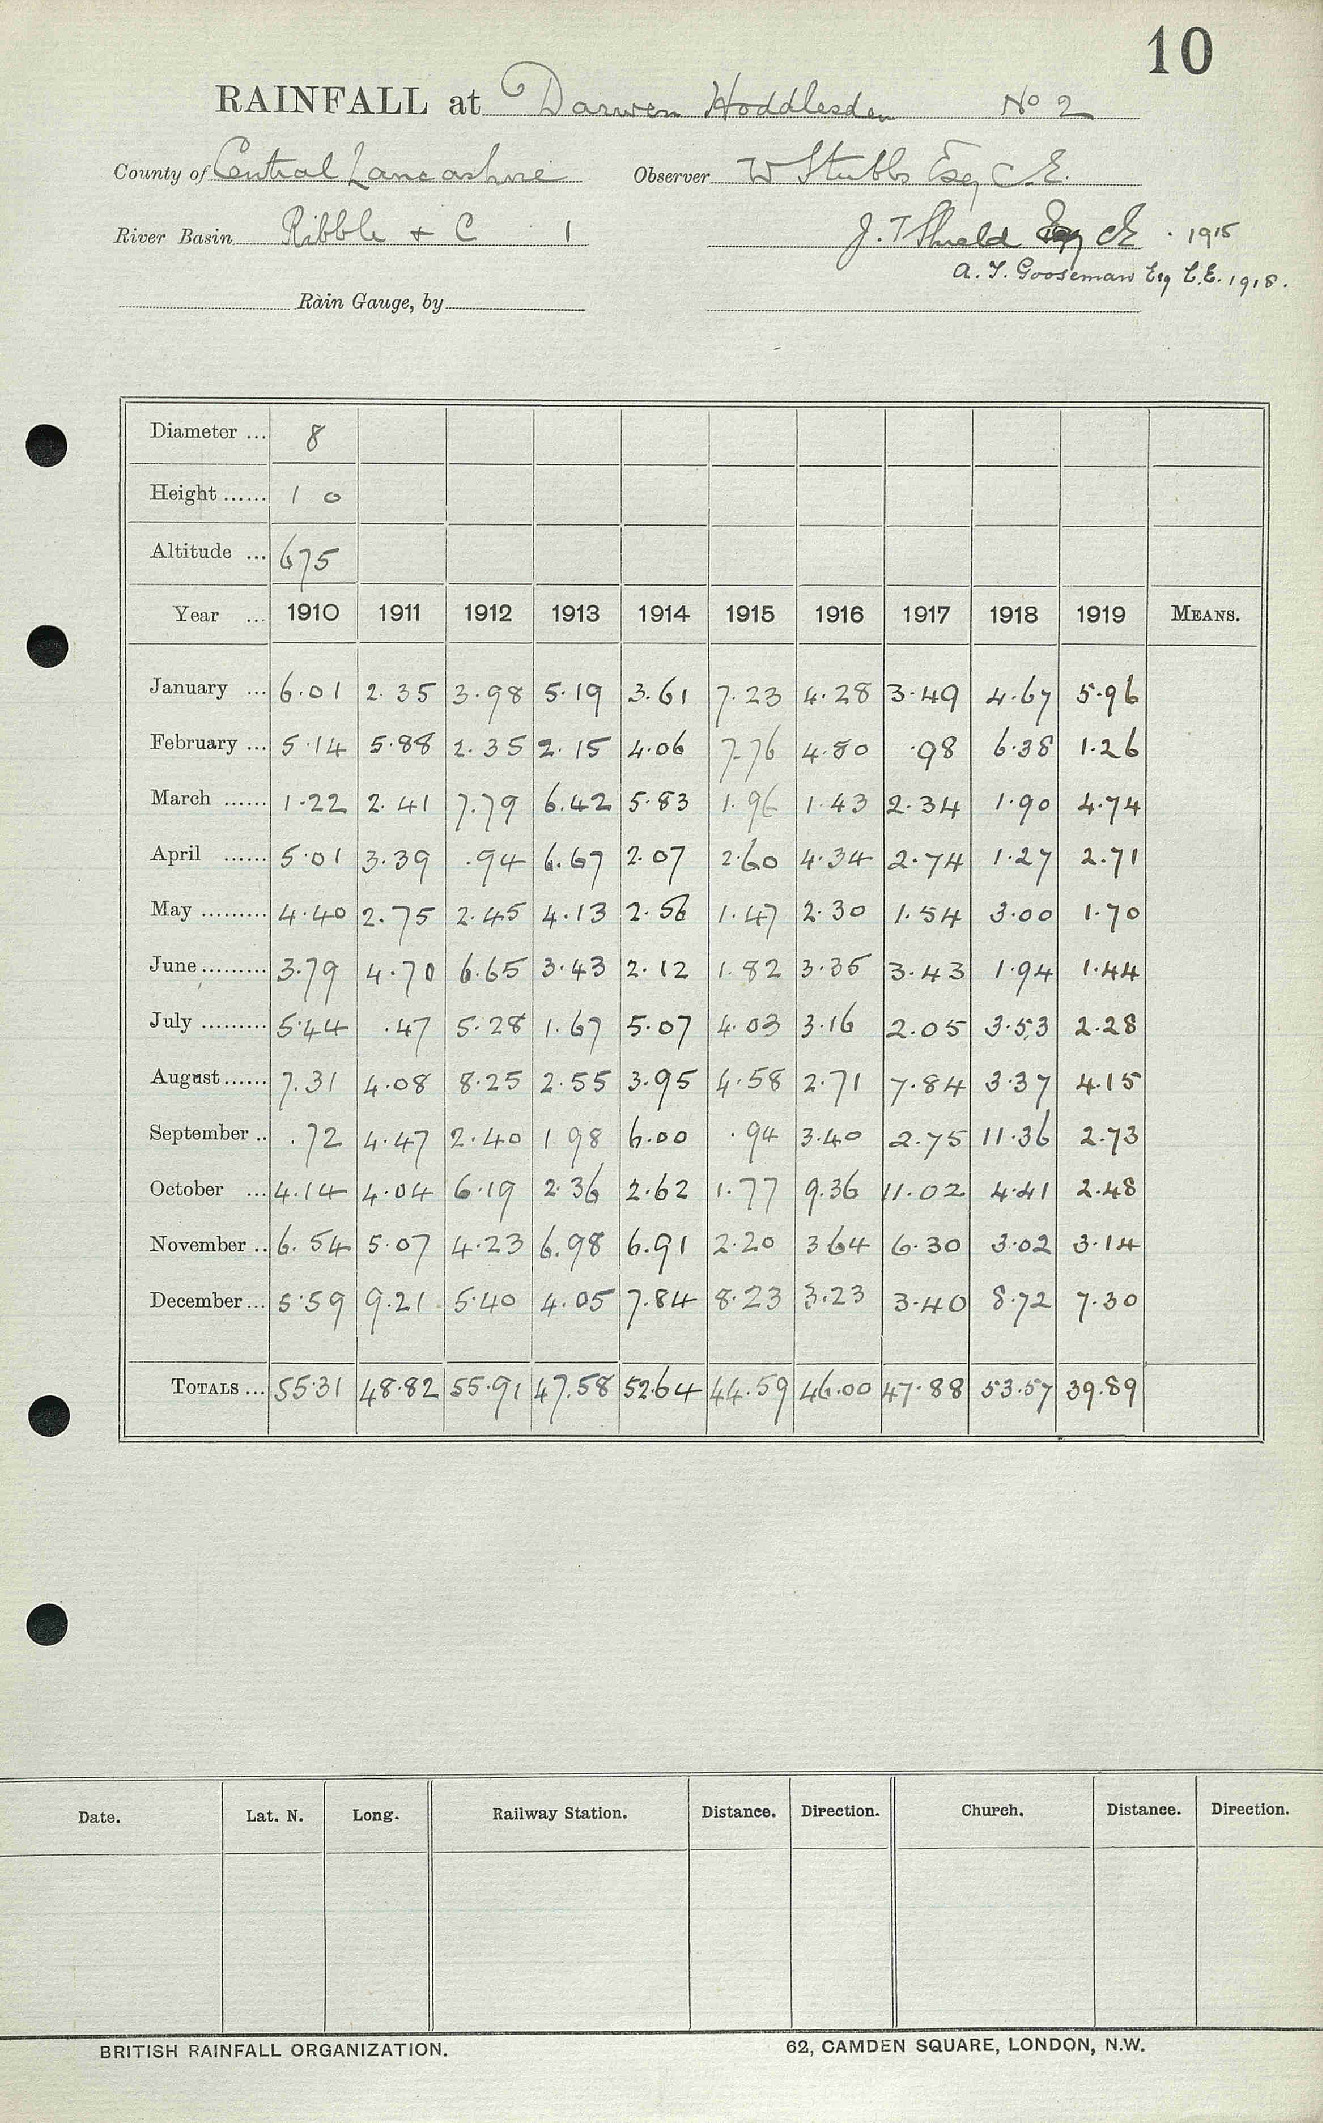 10
RAINFALL at Darwen Hoddlesden No 2
County of Central Lancashire Observer W Stubbs Esq C.E.
River Basin Ribble + C 1 J. T Shield Esq CE . 1915
A. T. Gooseman Esq C.E. 1918.
Rain Gauge, by
Diameter ... 8
Height ...... 1 0
Altitude ... 675
Year ... 1910 1911 1912 1913 1914 1915 1916 1917 1918 1919 MEANS.
January ... 6.01 2.35 3.98 5.19 3.61 7.23 4.28 3.49 4.67 5.96
February ... 5.14 5.88 2.35 2.15 4.06 7.76 4.80 .98 6.38 1.26
March ...... 1.22 2.41 7.79 6.42 5.83 1.96 1.43 2.34 1.90 4.74
April ...... 5.01 3.39 .94 6.67 2.07 2.60 4.34 2.74 1.27 2.71
May ......... 4.40 2.75 2.45 4.13 2.56 1.47 2.30 1.54 3.00 1.70
June ......... 3.79 4.70 6.65 3.43 2.12 1.82 3.35 3.43 1.94 1.44
July ......... 5.44 .47 5.28 1.67 5.07 4.03 3.16 2.05 3.53 2.28
August ...... 7.31 4.08 8.25 2.55 3.95 4.58 2.71 7.84 3.37 4.15
September .. .72 4.47 2.40 1 98 6.00 .94 3.40 2.75 11.36 2.73
October ... 4.14 4.04 6.19 2.36 2.62 1.77 9.36 11.02 4.41 2.48
November .. 6.54 5.07 4.23 6.98 6.91 2.20 3 64 6.30 3.02 3.14
December ... 5.59 9.21 5.40 4.05 7.84 8.23 3.23 3.40 8.72 7.30
TOTALS ... 55.31 48.82 55.91 47.58 52.64 44.59 46.00 47.88 53.57 39.89
Date. Lat. N. Long. Railway Station. Distance. Direction. Church. Distance. Direction.
BRITISH RAINFALL ORGANIZATION. 62, CAMDEN SQUARE, LONDON, N.W.